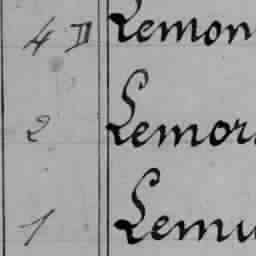 4 D Lemon
2 Lemor
1 Lemu